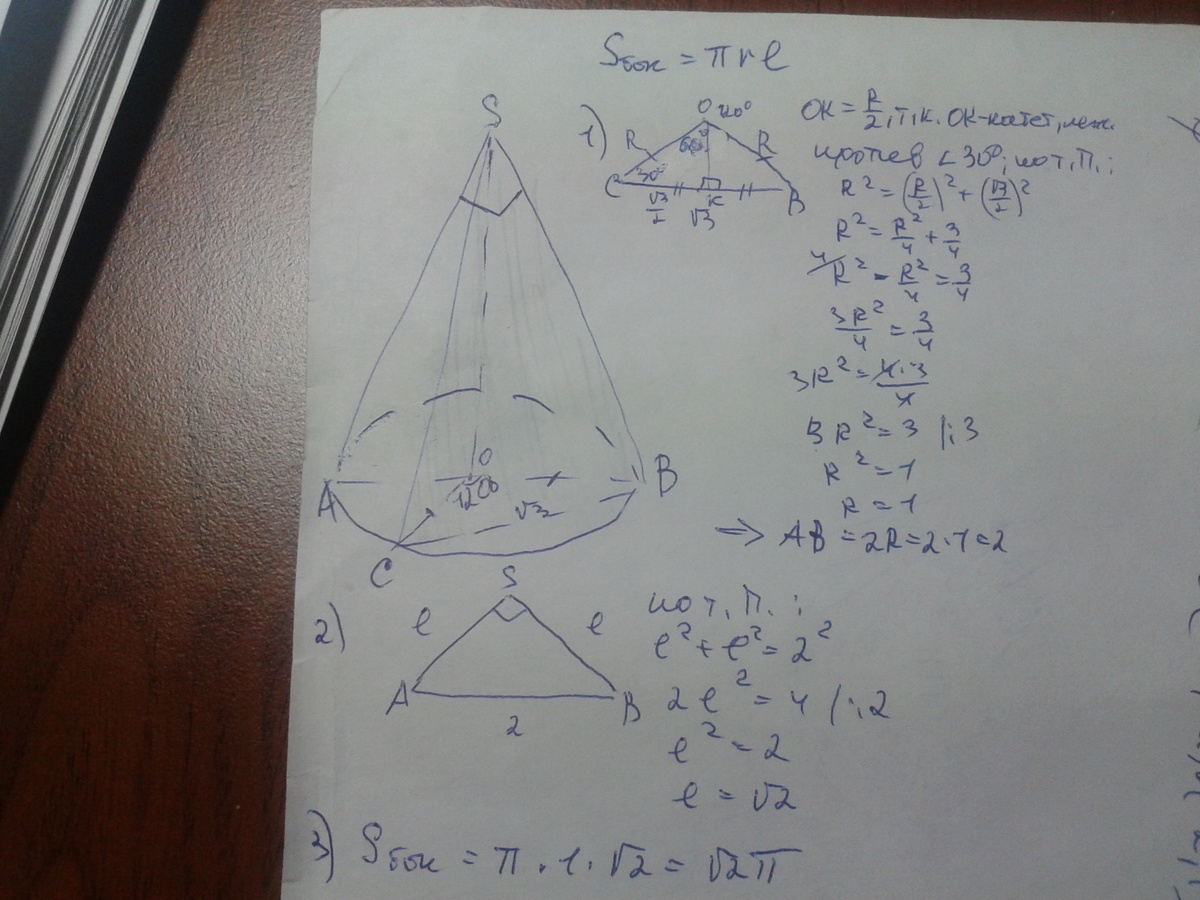 Sбок = πrl
S
1)
O 120°
R
R
60°
30°
C
K
B
√3/2
√3
OK = R/2, т.к. OK-катет, леж.
против ∠30°; по т.П.:
R² = (R/2)² + (√3/2)²
R² = R²/4 + 3/4
4/ R² - R²/4 = 3/4
3R²/4 = 3/4
3R² = 4·3/4
3R² = 3 |:3
R² = 1
R = 1
=> AB = 2R = 2·1 = 2
A
O
120°
B
√3
C
2)
S
l
l
A
B
2
по т.П.:
l² + l² = 2²
2l² = 4 /:2
l² = 2
l = √2
3) Sбок = π·1·√2 = √2π